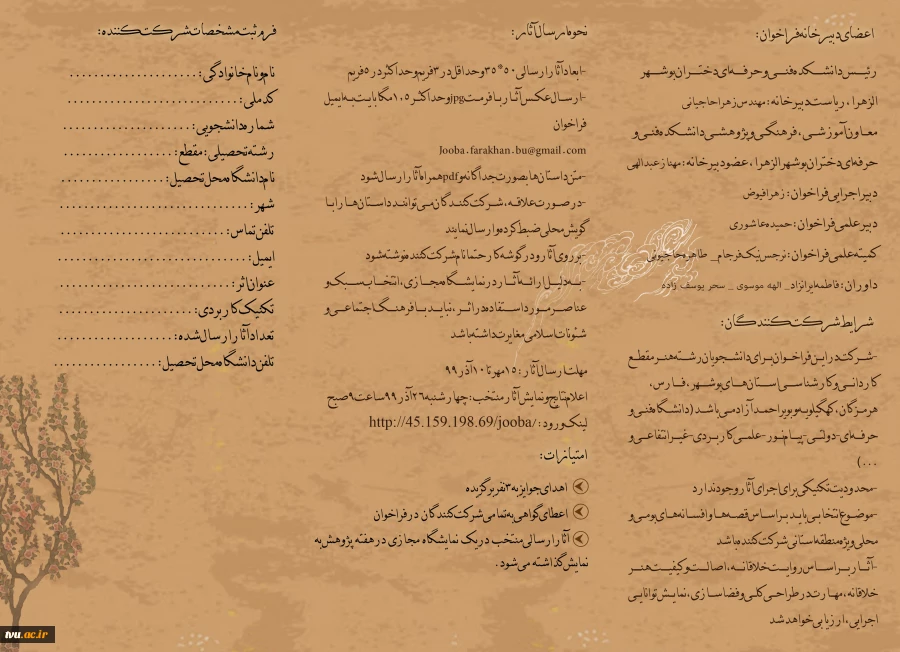 اعضای دبیرخانه فراخوان:
رئیس دانشکده فنی و حرفه‌ای دختران بوشهر
الزهرا، ریاست دبیرخانه: مهندس زهرا حاجیانی
معاون آموزشی، فرهنگی و پژوهشی دانشکده فنی و
حرفه‌ای دختران بوشهر الزهرا، عضو دبیرخانه: مهناز عبدالهی
دبیر اجرایی فراخوان: زهرا فیوض
دبیر علمی فراخوان: حمیده عاشوری
کمیته علمی فراخوان: نرجس نیک فرجام_ طاهره حاجیونی
داوران: فاطمه ایرانزاد_ الهه موسوی _ سحر یوسف زاده
شرایط شرکت کنندگان:
-شرکت در این فراخوان برای دانشجویان رشته هنر مقطع
کاردانی و کارشناسی استان‌های بوشهر، فارس،
هرمزگان، کهگیلویه و بویراحمد آزاد می‌باشد (دانشگاه فنی و
حرفه‌ای-دولتی-پیام نور-علمی کاربردی-غیرانتفاعی و
...)
-محدودیت تکنیکی برای اجرای آثار وجود ندارد
-موضوع انتخابی باید براساس قصه‌ها و افسانه‌های بومی و
محلی ویژه منطقه استانی شرکت کننده باشد
-آثار براساس روایت خلاقانه، اصالت و کیفیت هنر
خلاقانه، مهارت در طراحی کلی و فضاسازی، نمایش توانایی
اجرایی، ارزیابی خواهد شد
نحوه ارسال آثار:
-ابعاد آثار ارسالی ۵۰*۳۵ و حداقل در ۳ فریم و حداکثر در ۵ فریم
-ارسال عکس آثار با فرمت jpg و حداکثر ۱،۵ مگابایت به ایمیل
فراخوان
Jooba.farakhan.bu@gmail.com
-متن داستان‌ها بصورت جداگانه و pdf همراه آثار ارسال شود
-در صورت علاقه، شرکت کنندگان می‌توانند داستان‌ها را با
گویش محلی ضبط کرده و ارسال نمایند
-بر روی آثار و در گوشه کار حتما نام شرکت کننده نوشته شود
-به دلیل ارائه آثار در نمایشگاه مجازی، انتخاب سبک و
عناصر مورد استفاده در اثر، نباید با فرهنگ اجتماعی و
شئونات اسلامی مغایرت داشته باشد
مهلت ارسال آثار: ۱۵ مهر تا ۱۰ آذر ۹۹
اعلام نتایج و نمایش آثار منتخب: چهارشنبه ۲۶ آذر ۹۹ ساعت ۹ صبح
لینک ورود: http://45.159.198.69/jooba/
امتیازات:
اهدای جوایز به ۳ نفر برگزیده
اعطای گواهی به تمامی شرکت کنندگان در فراخوان
آثار ارسالی منتخب در یک نمایشگاه مجازی در هفته پژوهش به
نمایش گذاشته می‌شود.
فرم ثبت مشخصات شرکت کننده:
نام و نام خانوادگی:.....................
کدملی:............................
شماره دانشجویی:.....................
رشته تحصیلی: مقطع:..................
نام دانشگاه محل تحصیل:..................
شهر:............................
تلفن تماس:...........................
ایمیل:...............................
عنوان اثر:............................
تکنیک کاربردی:......................
تعداد آثار ارسال شده:...................
تلفن دانشگاه محل تحصیل:.................
tvu.ac.ir